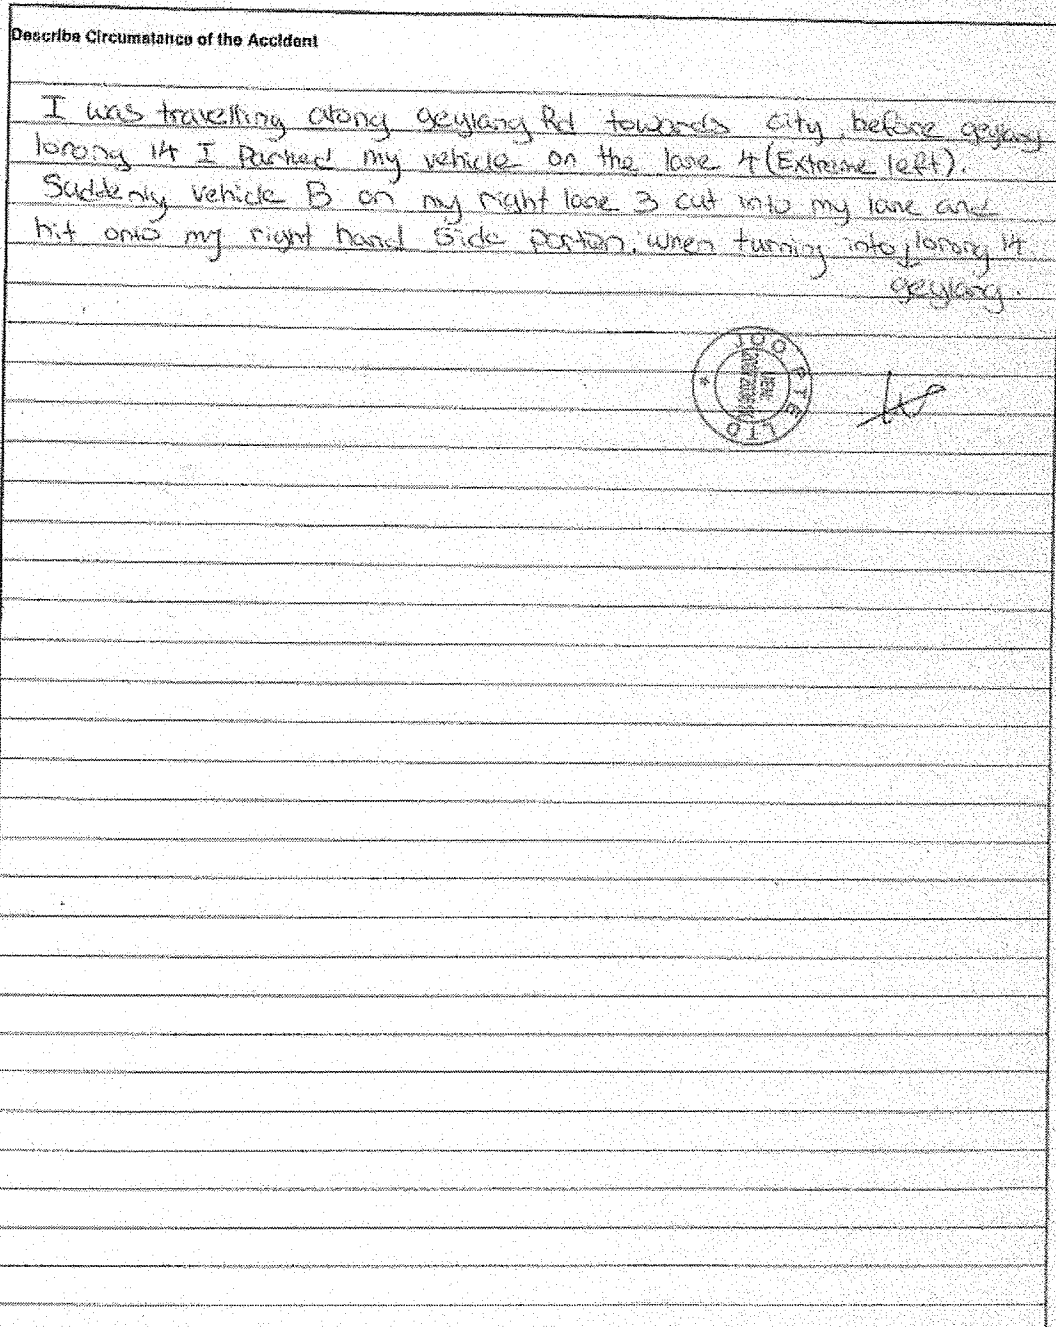 Describe Circumstance of the Accident
I was travelling along geylang Rd towards city, before geylang
lorong 14 I Parked my vehicle on the lane 4 (Extreme left).
Suddenly vehicle B on my right lane 3 cut into my lane and
hit onto my right hand side portion, when turning into lorong 14
geylang.
JOO PTE LTD